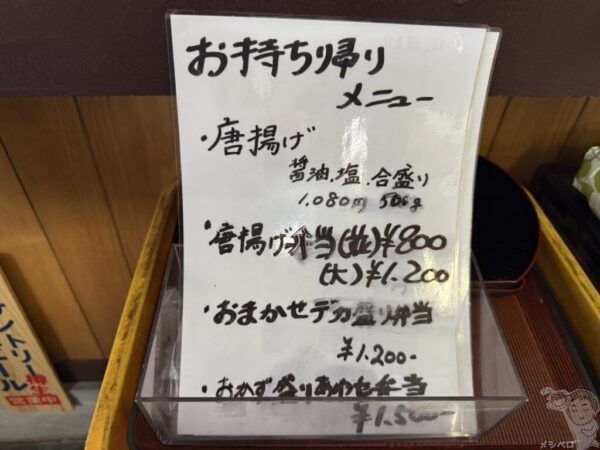 お持ち帰り
メニュー
・唐揚げ
醤油、塩、合盛り
1,080円 500g
・唐揚げ弁当(並)¥800
(大)¥1,200
・おまかせデカ盛り弁当
¥1,200-
・おかず盛りあわせ弁当
¥1,500-
ントリー
営業中
メシペロ